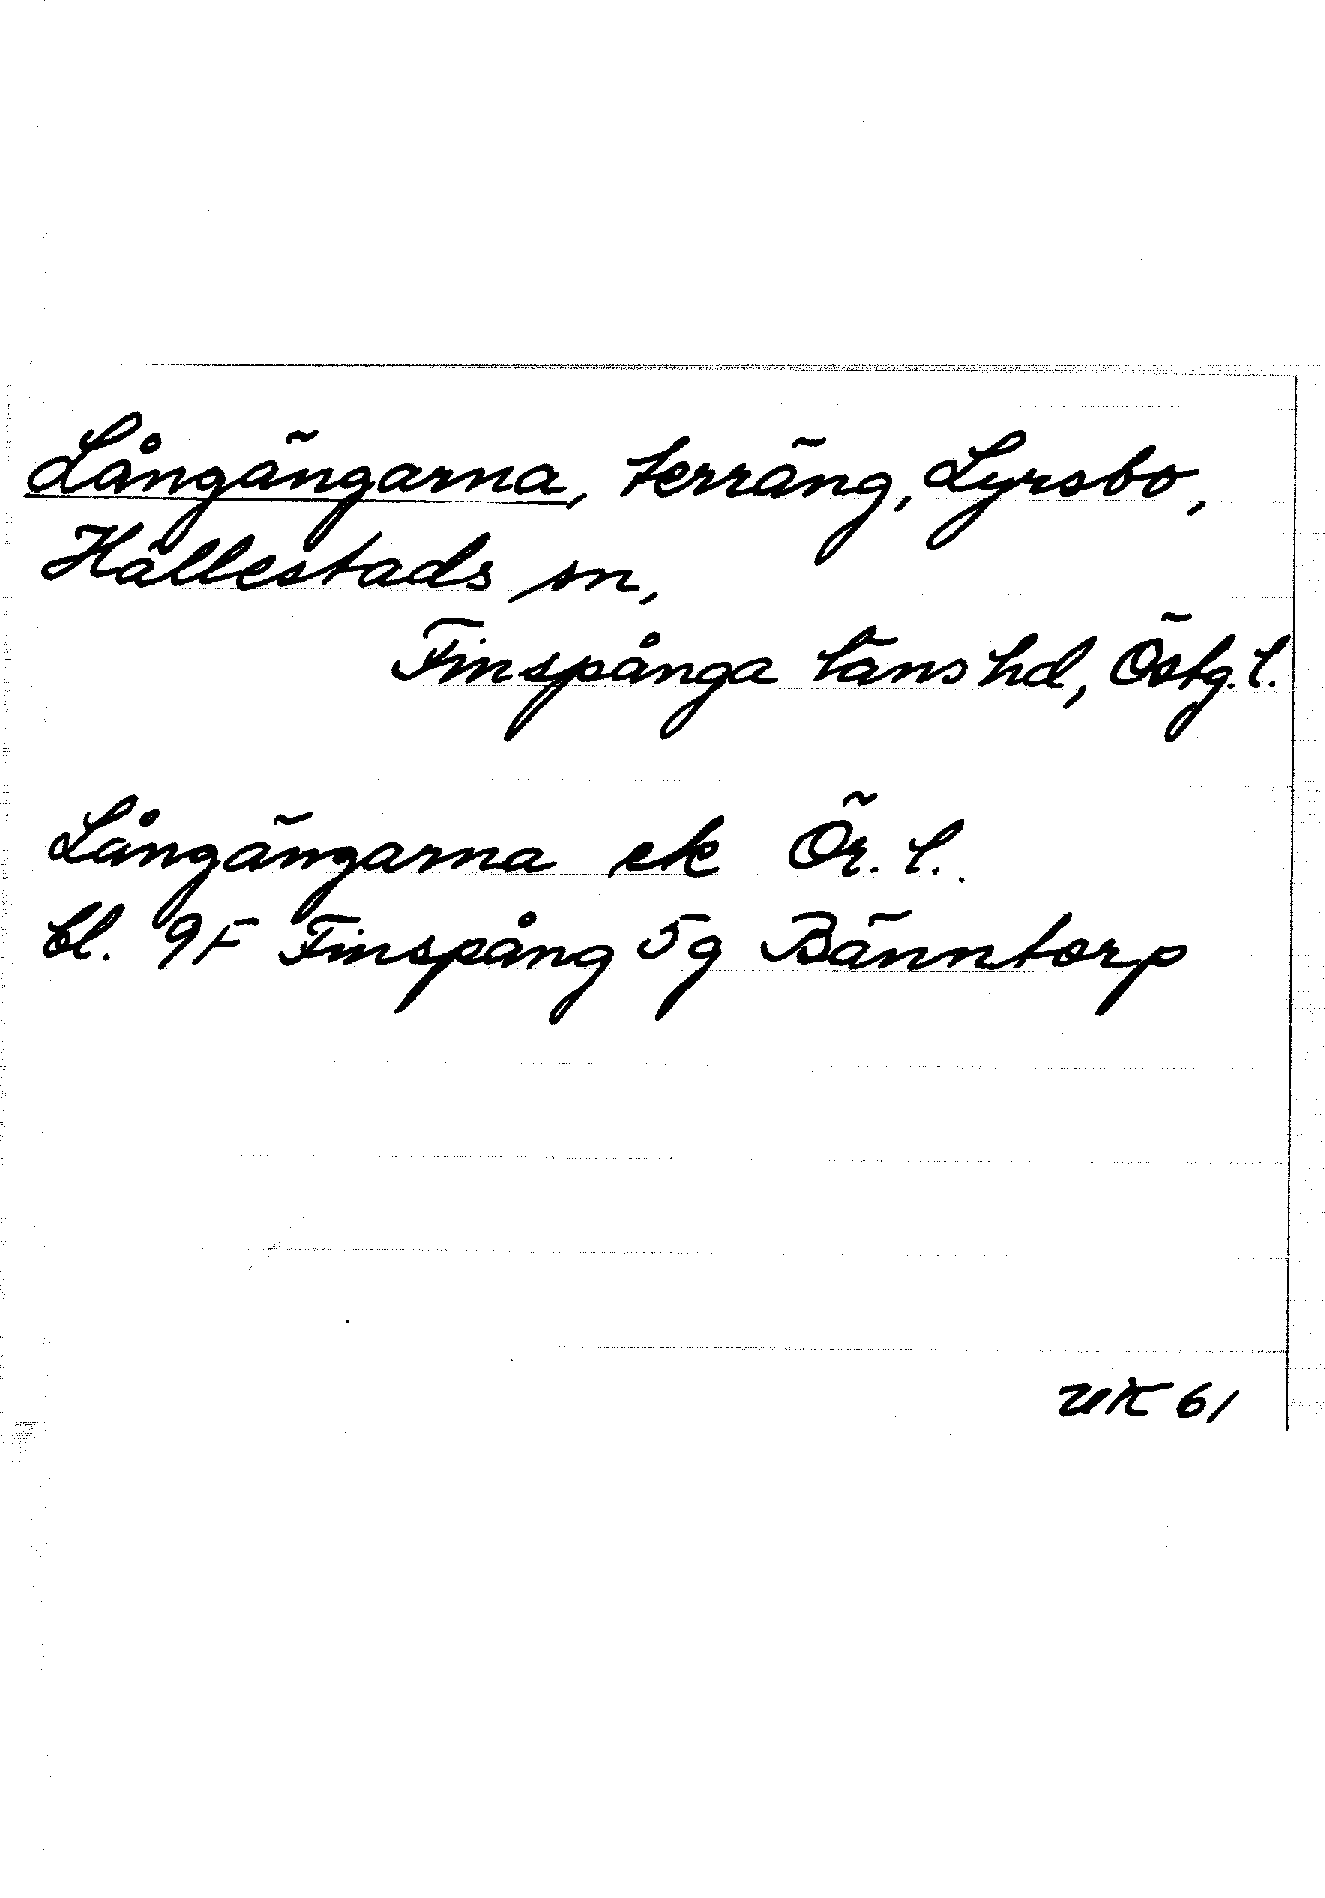 Långängarna, terräng, Lyrsbo,
Hällestads sn,
Finspånga läns hd, Östg. l.
Långängarna ek Ör. l.
bl. 9F Finspång 5g Bänntorp
UK 61